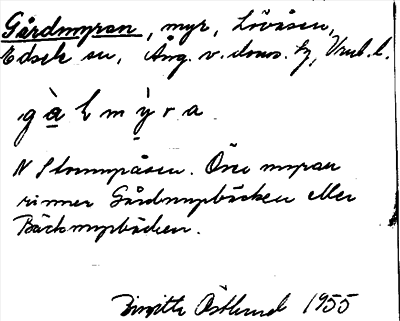 Gårdmyran, myr, Lövåsen,
Edsele sn, Ång. v. doms. hd, Vnrl. l.
gàḷmỳra
N Stormyråsen. Över myran
rinner Gårdmyrbäcken eller
Bäckmyrbäcken.
Birgitta Östlund 1955